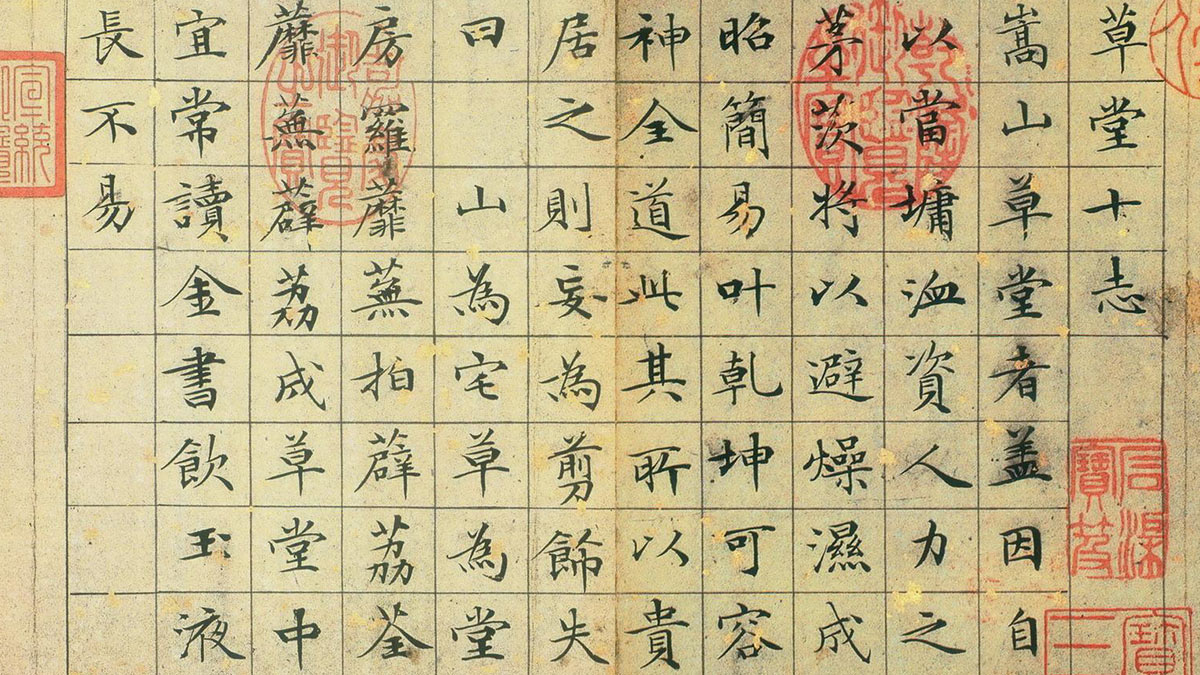 草堂十志
嵩山草堂者盖因自
以當墉洫資人力之
茅茨將以避燥濕成
昭簡易叶乾坤可容
神全道此其所以貴
居之則妄為剪飾失
曰 山為宅草為堂
房羅蘼蕪拍薜荔荃
蘼蕪薜荔成草堂中
宜常讀金書飲玉液
長不易
乾隆御覽之寶
石渠寶笈
宣統